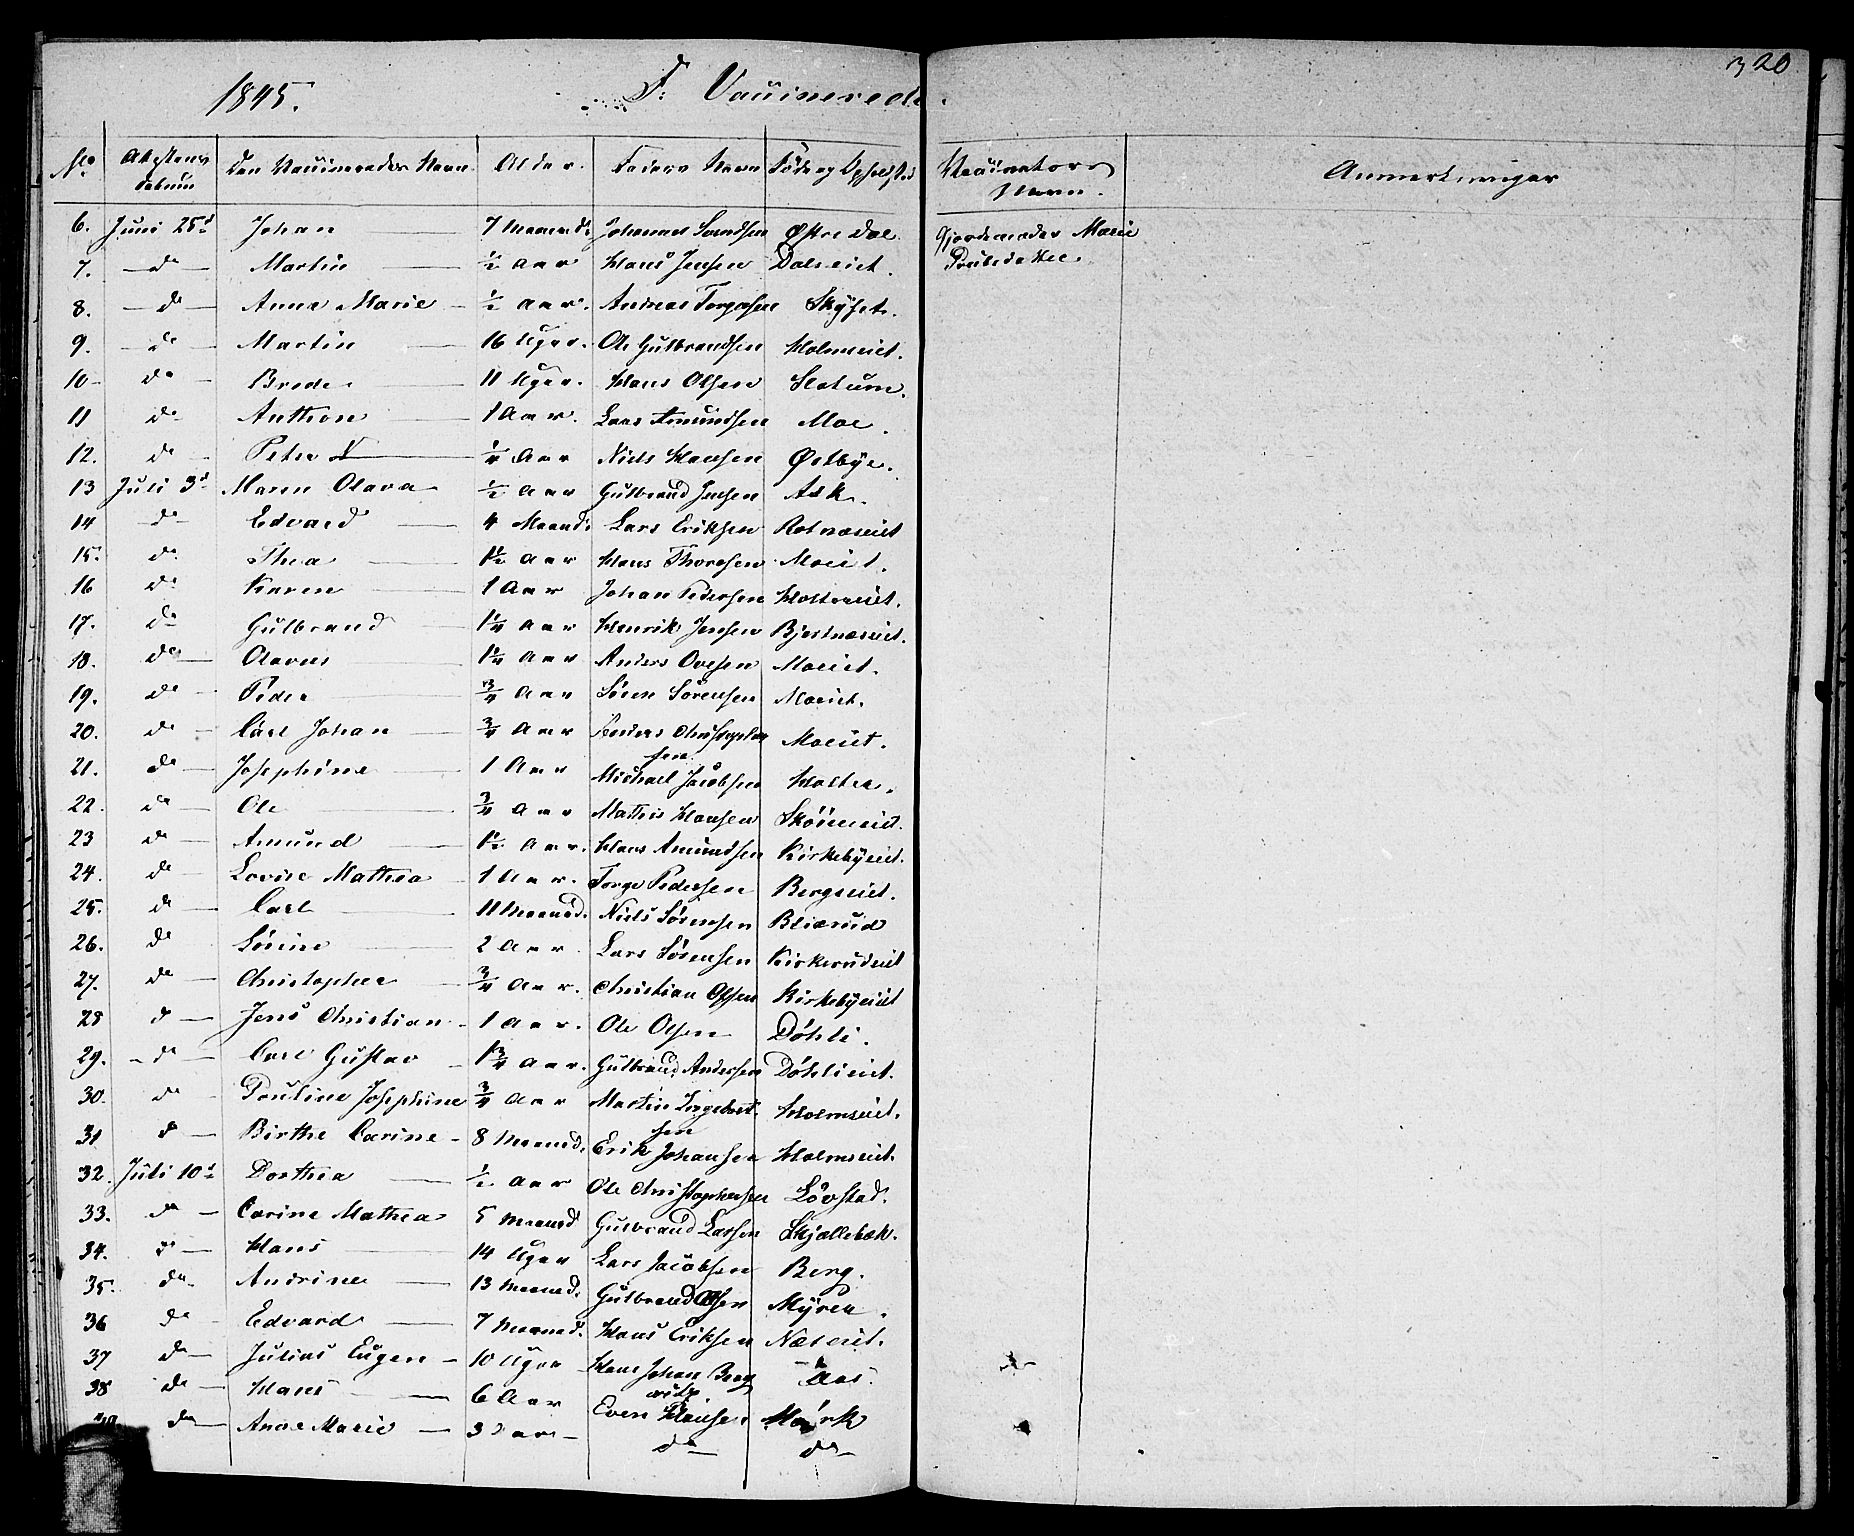 320
1845. F. Vaccinerede.
No. Attestens datum Den Vaccineredes Navn Alder. Faders Navn Føde og Opholdsted Vaccinators Navn. Anmerkninger
6. Juni 25d Johan 7 Maaneder Johannes Svendsen Østre Dal. Gjordemoder Marie
7. — do — Martin — ½ Aar Hans Jensen Dalseiet.
8. — do — Anna Marie — ½ Aar. Andreas Torgersen
9. — do — Martin — 16 Uger. Ole Gulbrandsen Holmseiet.
10 — do — Brede — 11 Uger. Hans Olsen Slatum.
11 do Anthon — 1 Aar. Lars Amundsen Moe.
12. do — Peter — ¼ Aar Niels Hansen Østbye.
13 Juli 3d Maren Olava ½ Aar Gulbrand Jensen Ask.
14 do Edvard — 4 Maaned: Lars Eriksen Rotnæseiet
15. do Thea — 1½ Aar Hans Thoresen Moeiet.
16 do Karen — 1 Aar Johan Pedersen Holtereiet.
17. do Gulbrand — 1¼ Aar Henrik Jensen Bjertnæseiet.
18. do — Olavus — 1¼ Aar Anders Ovesen Moeiet.
19. do Peder — ¾ Aar Søren Sørensen Moeiet.
20. do — Carl Johan — ¾ Aar Anders Christopher
sen Moeiet.
21. do — Josephine — 1 Aar Michael Jacobsen Holter.
22. do — Ole — ¾ Aar Mathis Hansen
23 do — Amund — 1½ Aar. Hans Amundsen Kirkebyeiet.
24. do — Lovise Mathea — 1 Aar. Torge Pedersen Bergseiet.
25. do — Carl — 11 Maaned. Niels Sørensen
26. do Sørine — 2 Aar. Lars Sørensen Kirkerudeiet
27. do — Christopher — ¾ Aar. Christian Olsen Kirkebyeiet
28 do — Jens Christian — 1 Aar. Ole Olsen — Døhli.
29. — do — Carl Gustav — 1¾ Aar. Gulbrand Andersen Døhlieiet.
30. do — Pauline Josephine ¾ Aar Martin Ingebret-
sen Holmseiet.
31 do — Birthe Carine — 8 Maaned. Erik Johansen Holmseiet.
32. Juli 10d Dorthea — ½ Aar Ole Christophersen Løvstad.
33. do — Carine Mathea 5 Maaned Gulbrand Larsen Skjællebæk.
34. do — Hans — 14 Uger Lars Jacobsen Berg.
35. do — Andrine — 13 Maaned. Gulbrand Olsen Myren.
36 do — Edvard — 7 Maaned. Hans Eriksen Næseiet.
37 do — Julius Eugen — 10 Uger Hans Johan Berg
Aas.
38 do — Hans — 6 Aar Even Hansen Mørk
39. do — Anne Marie — 3 Aar — do — do —